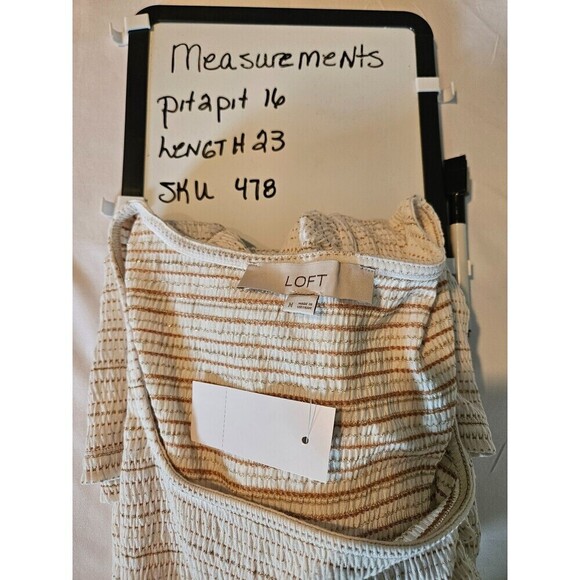 Measurements
pit2pit 16
LENGTH 23
SKU 478
LOFT
M